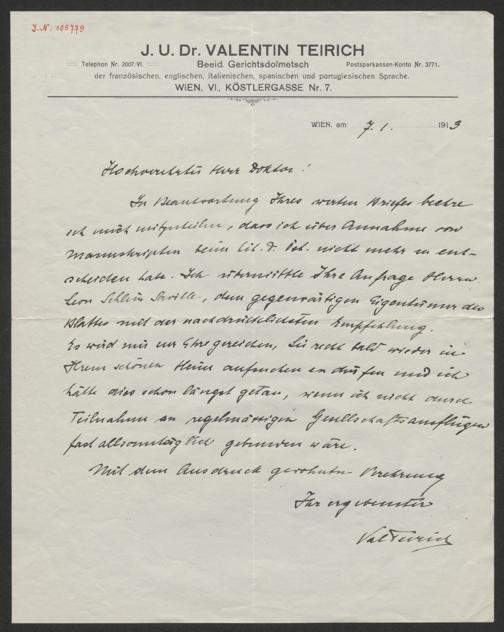 J.N. 105779
J. U. Dr. VALENTIN TEIRICH
Telephon Nr. 2007/VI. Beeid. Gerichtsdolmetsch Postsparkassen-Konto Nr. 3771.
der französischen, englischen, italienischen, spanischen und portugiesischen Sprache.
WIEN, VI., KÖSTLERGASSE Nr. 7.
WIEN, am 7. 1. 1913
Hochverehrter Herr Doktor!
In Beantwortung Ihres werten Briefes beehre
ich mich mitzuteilen, dass ich über Annahme von
Manuskripten beim nicht mehr zu ent-
scheiden habe. Ich übermittle Ihre Anfrage Herrn
Leon dem gegenwärtigen Eigentümer des
Blattes mit der nachdrücklichsten Empfehlung.
Es wird mir zur Ehre gereichen, Sie recht bald wieder in
Ihrem schönen Heim aufsuchen zu dürfen und ich
hätte dies schon längst getan, wenn ich nicht durch
Teilnahme an regelmässigen Gesellschaftsausflügen
fast allsonntäglich gebunden wäre.
Mit dem Ausdruck Verehrung
Ihr ergebenster
Val Teirich